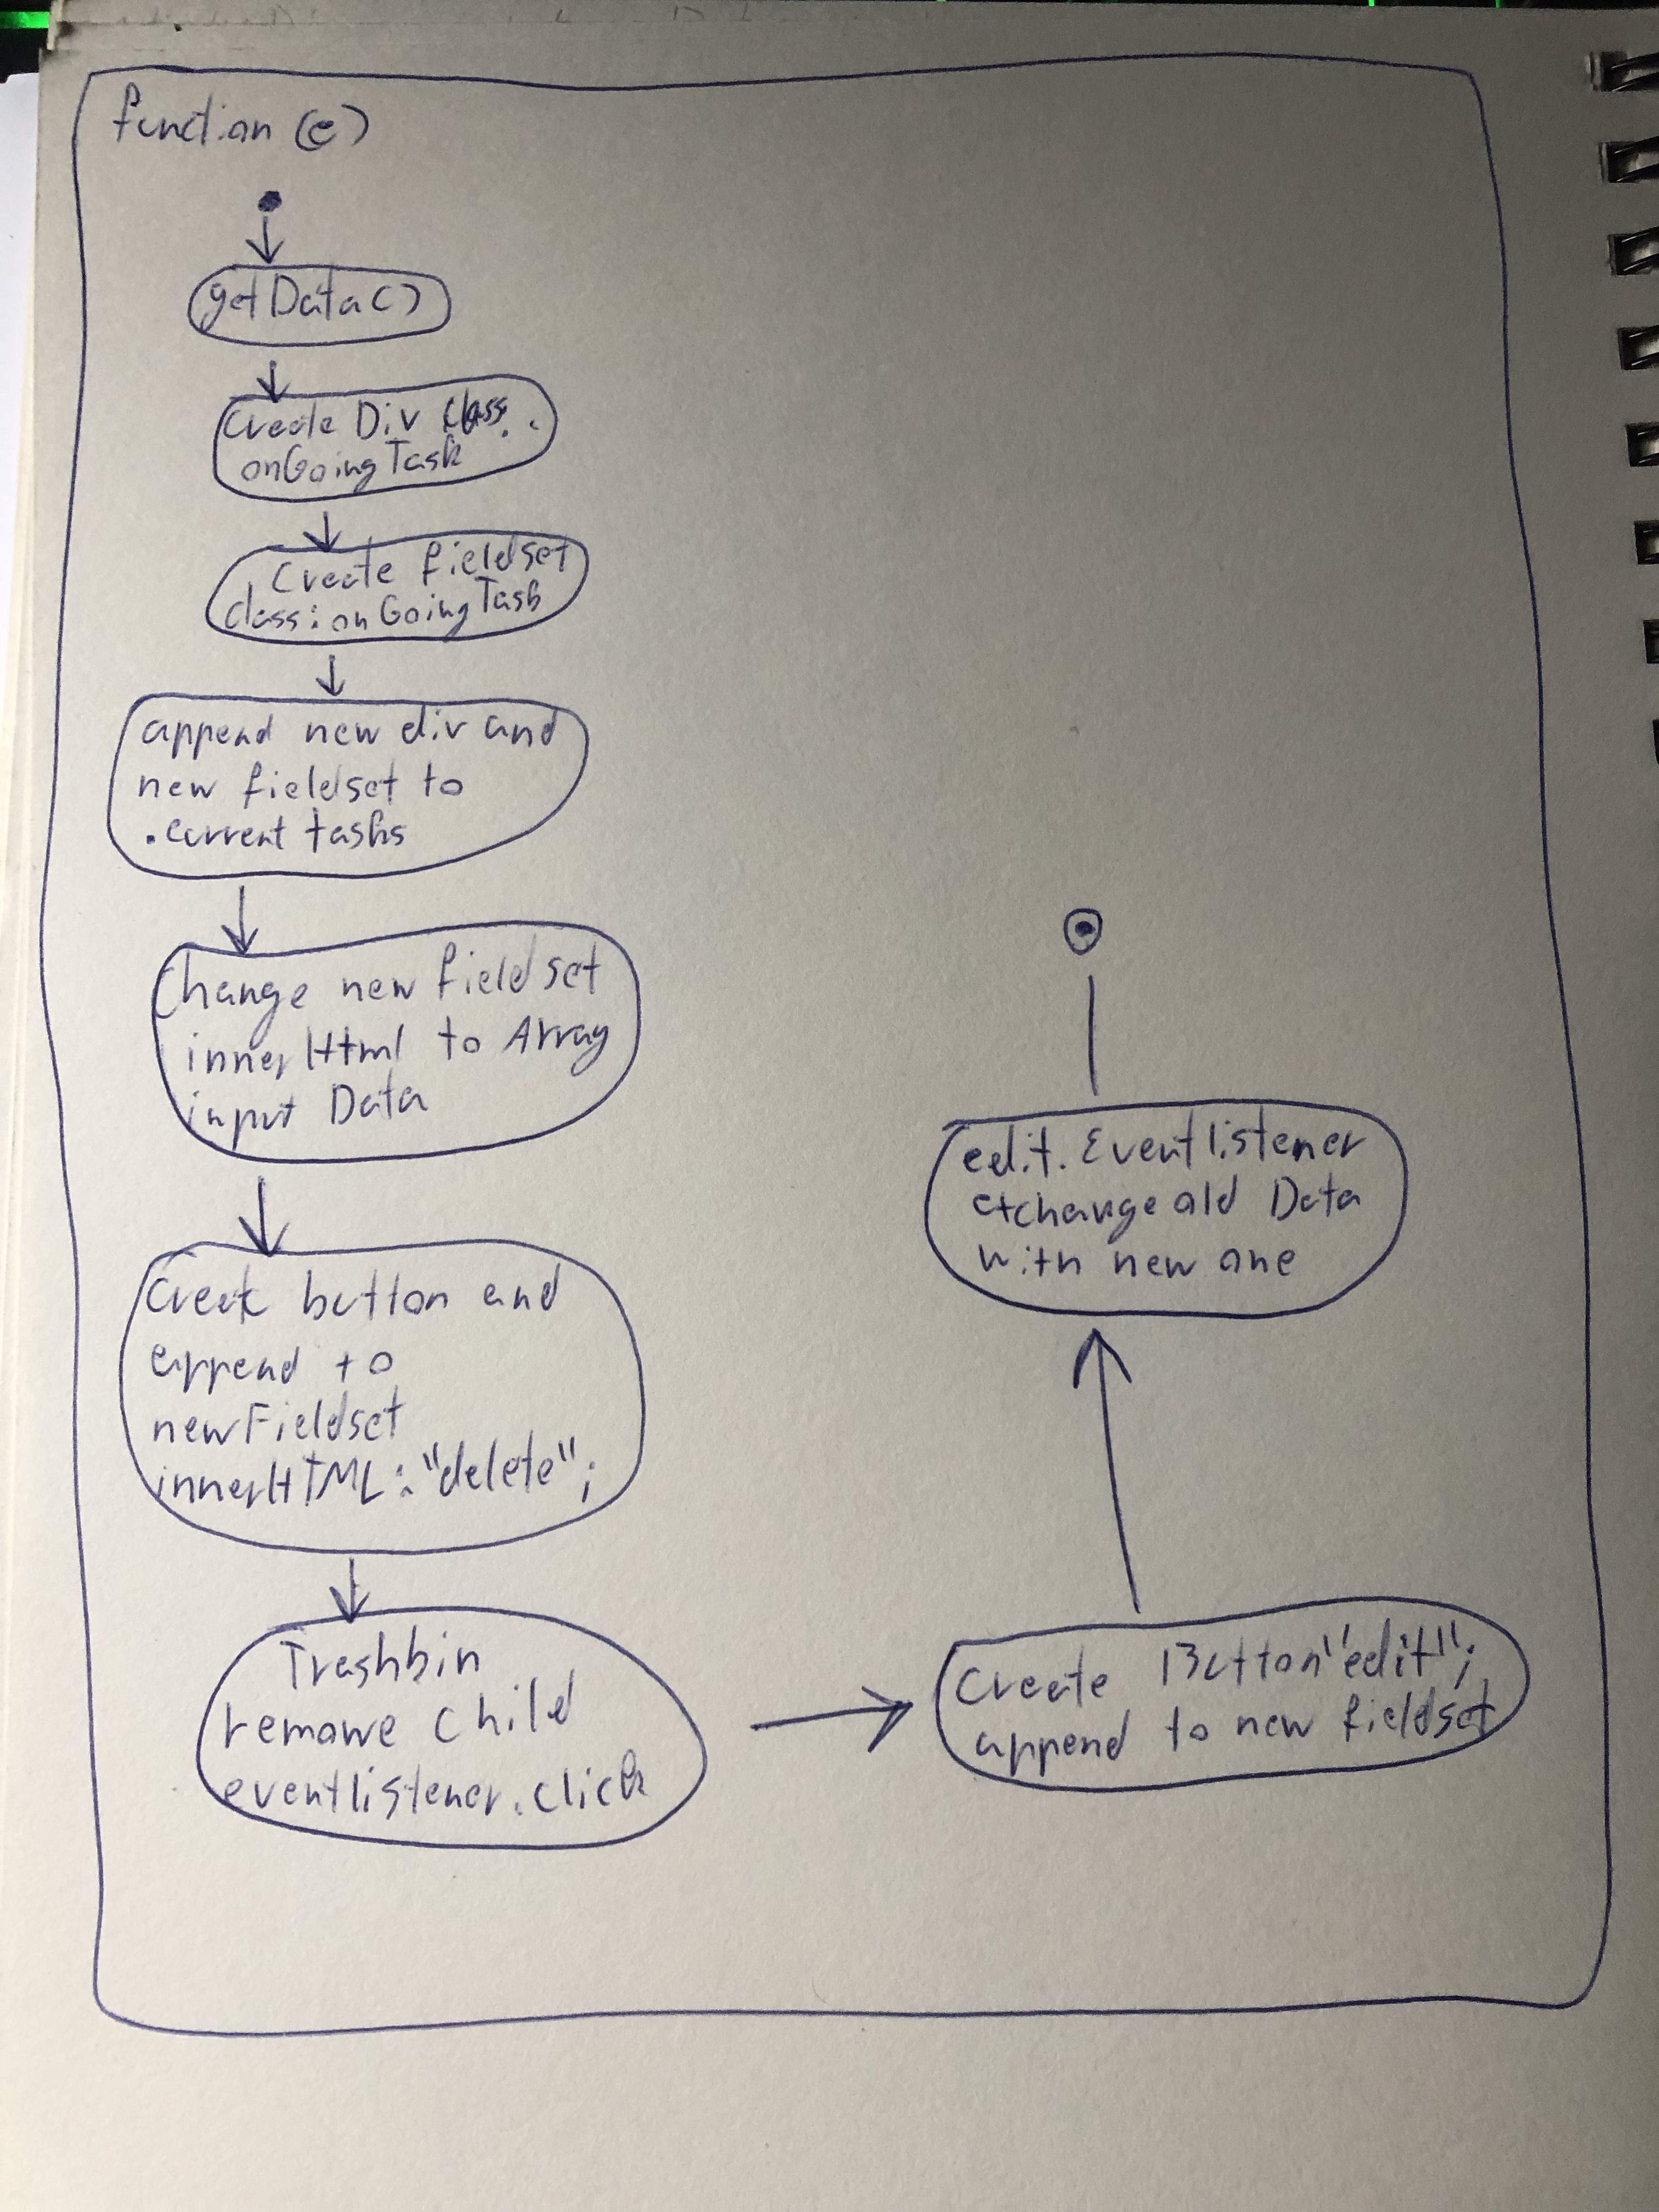 function (e)
getData()
Create Div class.
onGoingTask
Create fieldset
class: onGoingTask
append new div and
new fieldset to
.current tasks
Change new fieldset
innerHtml to Array
input Data
Create button and
append to
newFieldset
innerHTML: "delete";
Trashbin
remowe child
eventlistener.click
Create Button "edit";
append to new fieldset
edit. Eventlistener
exchange old Data
with new one